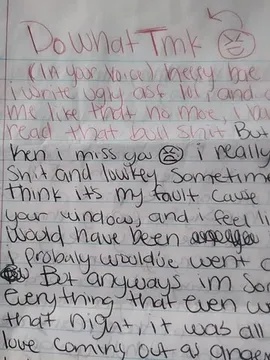 DoWhat Tmk
(In your voice) heyyy bae
I write ugly asf lol, and
me like that no moe, I
read that bull shit But
hen i miss you i really
shit and lowkey sometim
think it's my fault cause
your window, and i feel li
would have been
probaly would've went
But anyways im So
everything that even w
that night, it was all
love coming out as ange